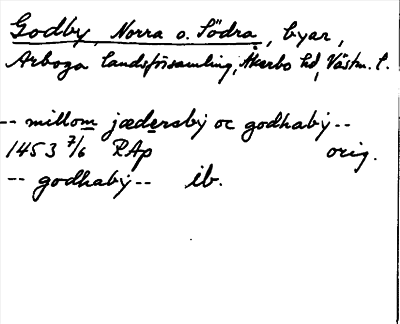 Godby, Norra o. Södra, byar,
Arboga landsförsamling, Åkerbo hd, Västm. l.
-- millom jædersby oc godhaby --
1453 7/6 RAp orig.
-- godhaby -- ib.